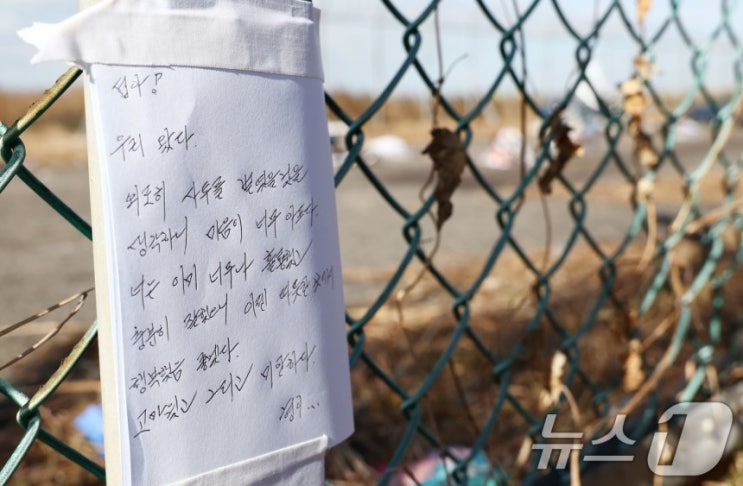 섭아!
우리 왔다.
외로히 사투를 벌였을것을
생각하니 마음이 너무 아프다.
너는 이미 너무나 훌륭했고
충분히 잘했으니 이젠 따뜻한 곳에서
행복했음 좋겠다.
고마웠고 그리고 미안하다.
형이...
뉴스1